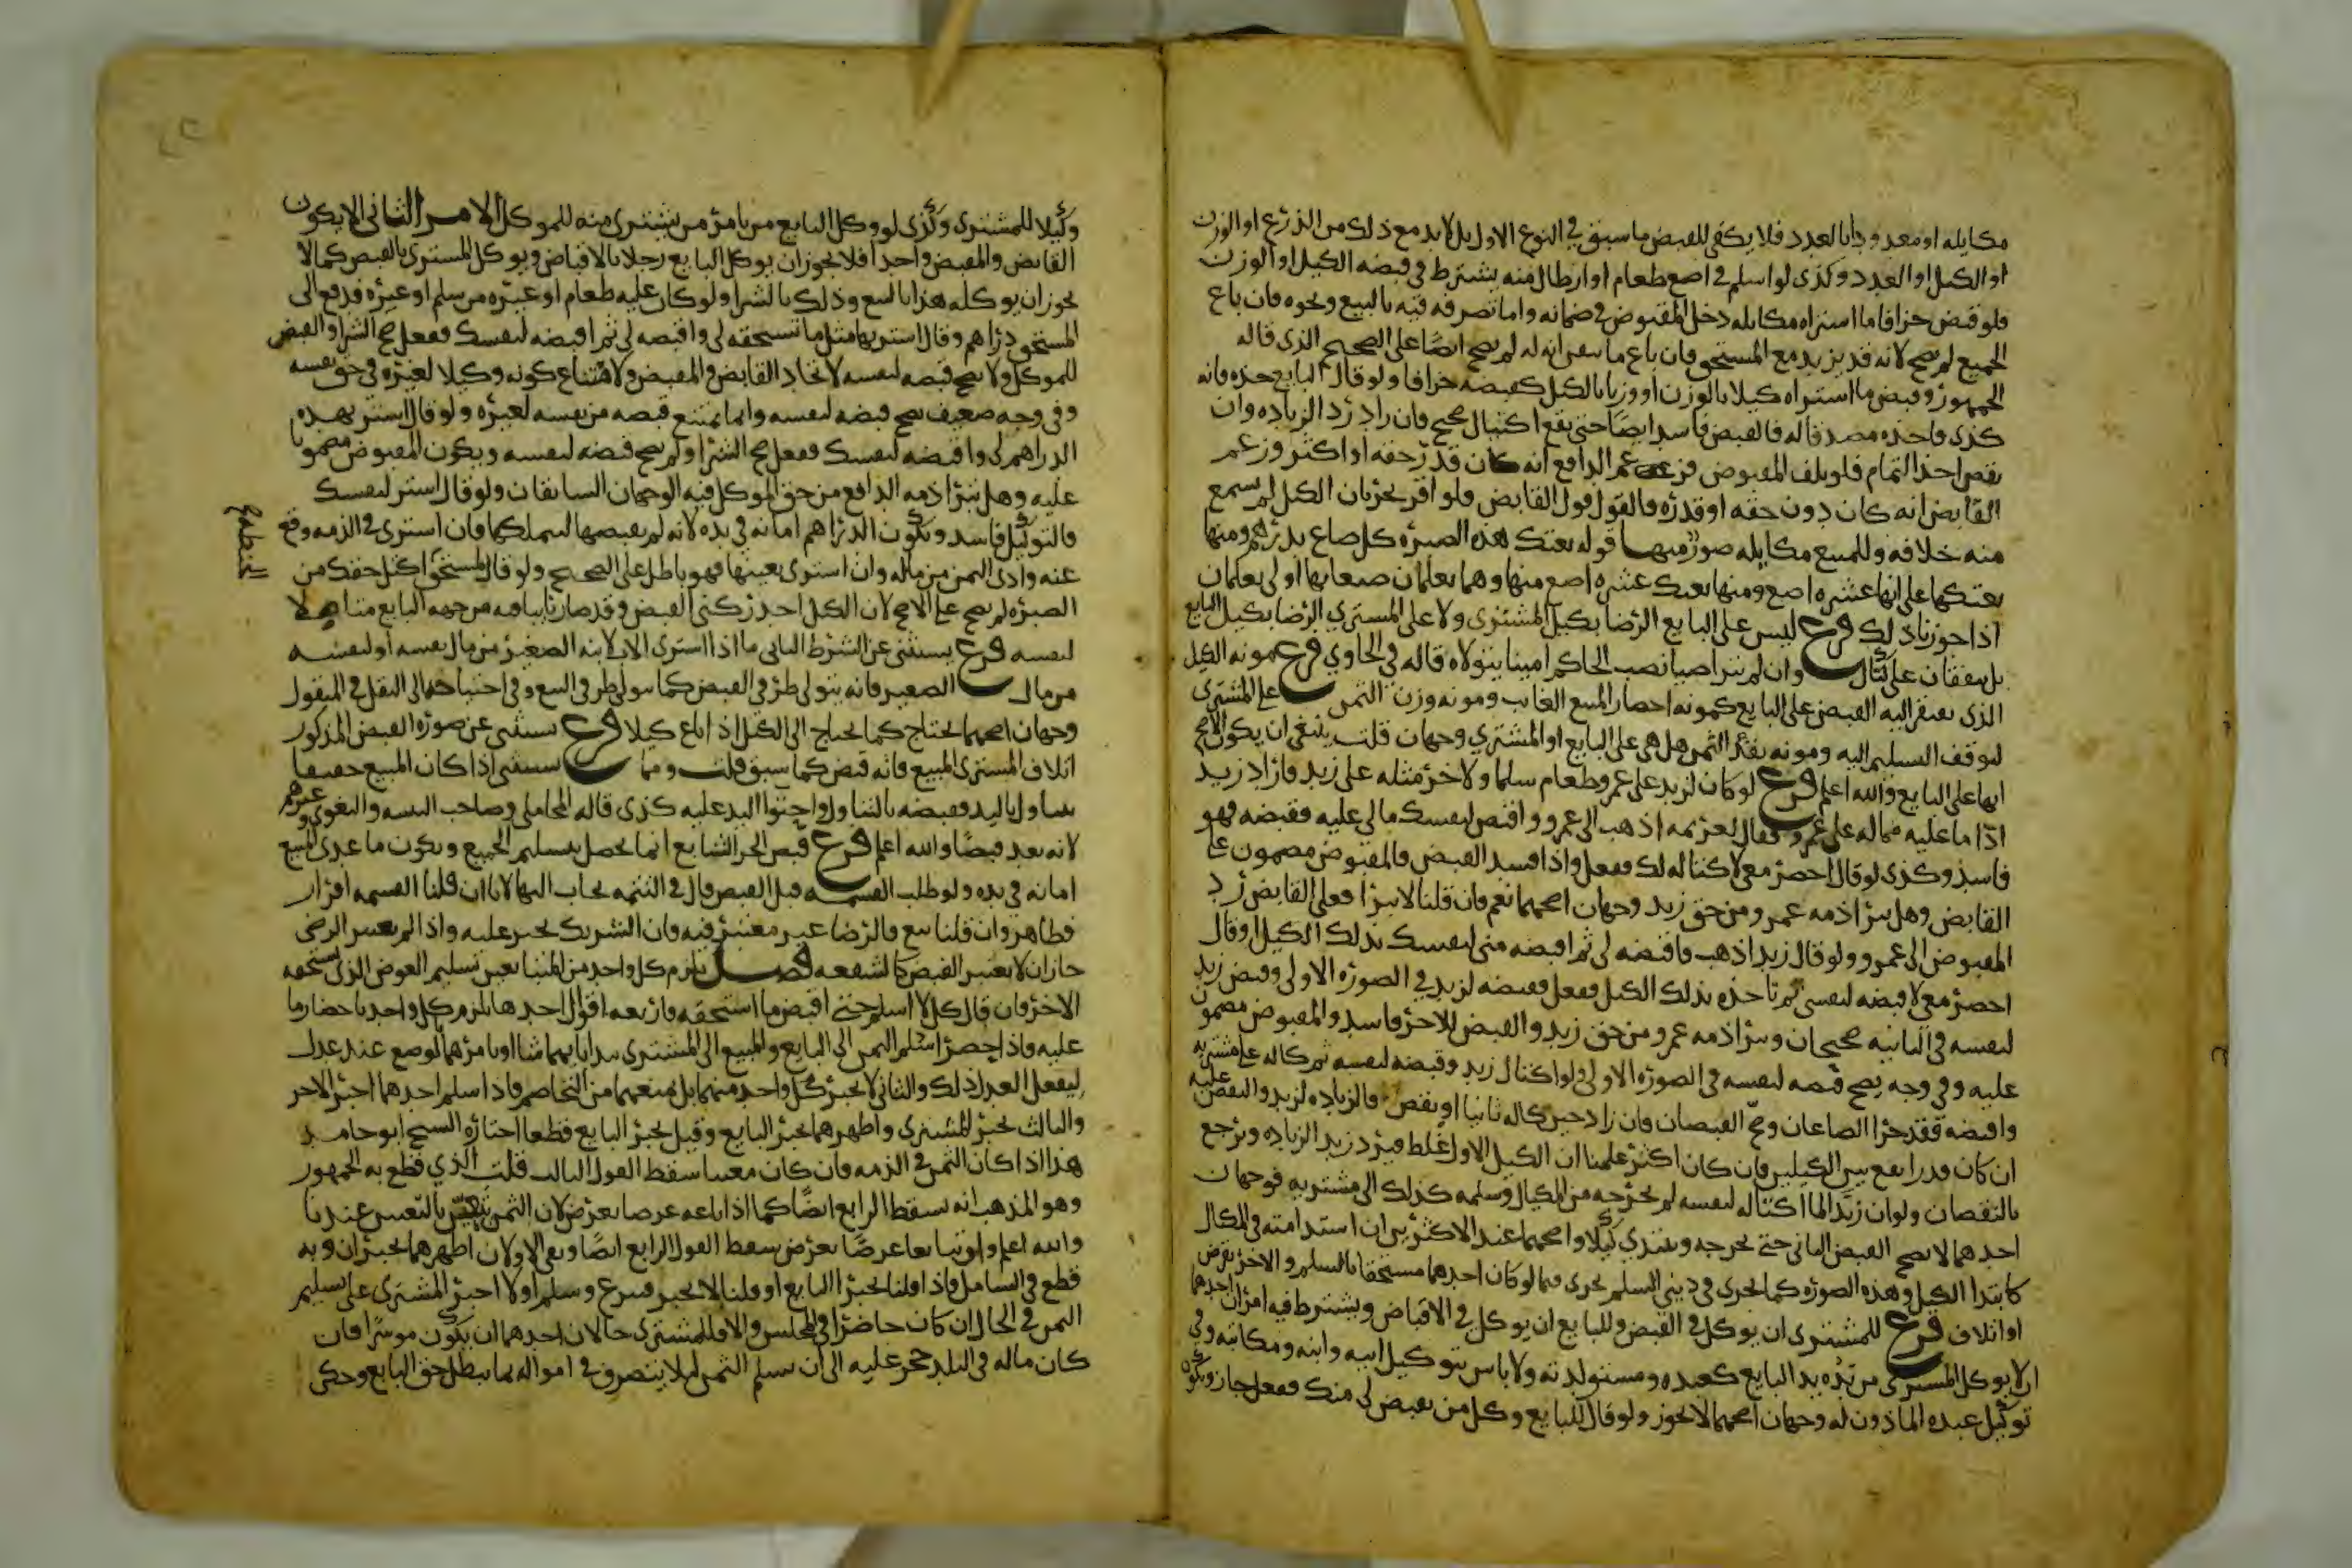 مكايله او معدودا بالعدد فلا يكفي للقبض ما سبق في النوع الاول بل لابد مع ذلك من الذرع او الوزن
او الكيل او العدد وكذى لو اسلم في اصع طعام او ارطال منه يشترط في قبضه الكيل او الوزن
فلو قبض جزافا ما اشتراه مكايله دخل المقبوض في ضمانه واما تصرفه فيه بالبيع ونحوه فان باع
الجميع لم يصح لانه قد يزيد مع المستحق فان باع ما تيقن انه له لم يصح ايضا على الصحيح الذي قاله
الجمهور وقبض ما اشتراه كيلا بالوزن او وزنا بالكيل كقبضه جزافا ولو قال البايع خذه فانه
كذى فاخذه مصدقا له فالقبض فاسد ايضا حتى يقع اكتيال صحيح فان زاد رد الزيادة وان
نقص اخذ التمام فلو تلف المقبوض فزعم الدافع انه كان قدر حقه او اكثر وزعم
القابض انه كان دون حقه او قدره فالقول قول القابض فلو اقر بجريان الكيل لم يسمع
منه خلافه وللمبيع مكايله صور منها قوله بعتك هذه الصبره كل صاع بدرهم ومنها
بعتكها على انها عشره اصع ومنها بعتك عشره اصع منها وهما يعلمان صيعانها او لا يعلمان
اذا جوزنا ذلك فرع ليس على البايع الرضا بكيل المشتري ولا على المشتري الرضا بكيل البايع
بل يتفقان على كيال وان لم يتراضيا نصب الحاكم امينا يتولاه قاله في الحاوي فرع مونه الكيل
الذي يفتقر اليه القبض على البايع كمونه احضار المبيع الغايب ومونه وزن الثمن على المشتري
لتوقف التسليم اليه ومونه نقد الثمن هل هي على البايع او المشتري وجهان قلت ينبغي ان يكون الاصح
انها على البايع والله اعلم فرع لو كان لزيد على عمرو طعام سلما ولاخر مثله على زيد فاراد زيد
اداء ما عليه مما له على عمرو فقال لغريمه اذهب الى عمرو واقبض لنفسك ما لي عليه فقبضه فهو
فاسد وكذى لو قال احضر معي لاكتاله لك ففعل واذا فسد القبض فالمقبوض مضمون على
القابض وهل تبرا ذمه عمرو من حق زيد وجهان اصحهما نعم فان قلنا لا تبرا فعلى القابض رد
المقبوض الى عمرو ولو قال زيد اذهب فاقبضه لي ثم اقبضه مني لنفسك بذلك الكيل او قال
احضر معي لاقبضه لنفسي ثم تاخذه بذلك الكيل ففعل فقبضه لزيد في الصوره الاولى وقبض زيد
لنفسه في الثانيه صحيحان وتبرا ذمه عمرو من حق زيد والقبض للاخر فاسد والمقبوض مضمون
عليه وفي وجه يصح قبضه لنفسه في الصوره الاولى ولو اكتال زيد وقبضه لنفسه ثم كاله على مشتريه
واقبضه فقد جرا الصاعان وصح القبضان فان زاد حين كاله ثانيا او نقص فالزياده لزيد والنقص عليه
ان كان قدرا يقع بين الكيلين فان كان اكثر علمنا ان الكيل الاول غلط فيرد زيد الزياده ويرجع
بالنقصان ولو ان زيدا لما اكتاله لنفسه لم يخرجه من المكيال وسلمه كذلك الى مشتريه فوجهان
احدهما لا يصح القبض الثاني حتى يخرجه ويبتدي كيلا واصحهما عند الاكثرين ان استدامته في المكيال
كابتدا الكيل وهذه الصوره كما تجري في ديني السلم تجري فيما لو كان احدهما مستحقا بالسلم والاخر بقرض
او اتلاف فرع للمشتري ان يوكل في القبض وللبايع ان يوكل في الاقباض ويشترط فيه امران احدهما
ان لا يوكل المشتري من يده يد البايع كعبده ومستولدته ولا باس بتوكيل ابيه وابنه ومكاتبه وفي
توكيل عبده الماذون له وجهان اصحهما لا يجوز ولو قال للبايع وكل من يقبض لي منك ففعل جاز ويكون
وكيلا للمشتري وكذى لو وكل البايع من يامر من يشتري منه للموكل الامر الثاني الا يكون
القابض والمقبض واحدا فلا يجوز ان يوكل البايع رجلا بالاقباض ويوكل المشتري بالقبض كما لا
يجوز ان يوكله هذا بالبيع وذلك بالشرا ولو كان عليه طعام او غيره من سلم او غيره فدفع الى
المستحق دراهم وقال اشتر بها مثل ما تستحقه لي واقبضه لي ثم اقبضه لنفسك ففعل صح الشرا والقبض
للموكل ولا يصح قبضه لنفسه لاتحاد القابض والمقبض ولامتناع كونه وكيلا لغيره في حق نفسه
وفي وجه ضعيف يصح قبضه لنفسه وانما يمتنع قبضه من نفسه لغيره ولو قال اشتر بهذه
الدراهم لي واقبضه لنفسك ففعل صح الشرا ولم يصح قبضه لنفسه ويكون المقبوض مضمونا
عليه وهل تبرا ذمه الدافع من حق الموكل فيه الوجهان السابقان ولو قال اشتر لنفسك
فالتوكيل فاسد وتكون الدراهم امانه في يده لانه لم يقبضها ليتملكها فان اشترى في الذمه وقع
عنه وادى الثمن من ماله وان اشترى بعينها فهو باطل على الصحيح ولو قال لمستحق اكتل حقك من
الصبره لم يصح على الاصح لان الكيل احد ركني القبض وقد صار نايبا فيه من جهه البايع متاصلا
لنفسه فرع يستثنى عن الشرط الثاني ما اذا اشترى الاب لابنه الصغير من مال نفسه او لنفسه
من مال الصغير فانه يتولى طرفي القبض كما يتولى طرفي البيع وفي احتياجهما الى النقل في المنقول
وجهان اصحهما يحتاج كما يحتاج الى الكيل اذا باع كيلا فرع يستثنى عن صوره القبض المذكور
اتلاف المشتري المبيع فانه قبض كما سبق قلت ومما يستثنى اذا كان المبيع خفيفا
يتناول باليد فقبضه بالتناول واحتوا اليد عليه كذى قاله المحاملي وصاحب التنبيه والبغوي وغيرهم
لانه يعد قبضا والله اعلم فرع قبض الجزء الشايع انما يحصل بتسليم الجميع ويكون ما عدى المبيع
امانه في يده ولو طلب القسمه قبل القبض قال في التتمه يجاب اليها لانا ان قلنا القسمه افراز
فظاهر وان قلنا بيع فالرضا غير معتبر فيه فان الشريك يجبر عليه واذا لم يعتبر الرضى
جاز ان لا يعتبر القبض كالشفعه فصل يلزم كل واحد من المتبايعين تسليم العوض الذي يستحقه
الاخر فان قال كل لا اسلم حتى اقبض ما استحقه فاربعه اقوال احدها يلزم كل واحد باحضار ما
عليه فاذا احضرا سلم الثمن الى البايع والمبيع الى المشتري بدا بايهما شا او يامرهما بالوضع عند عدل
ليفعل العدل ذلك والثاني لا يجبر كل واحد منهما بل يمنعهما من التخاصم فاذا سلم احدهما اجبر الاخر
والثالث يجبر المشتري واظهرهما يجبر البايع وقيل يجبر البايع قطعا اختاره الشيخ ابو حامد
هذا اذا كان الثمن في الذمه فان كان معينا سقط القول الثالث قلت الذي قطع به الجمهور
وهو المذهب انه يسقط الرابع ايضا كما اذا باعه عرضا بعرض لان الثمن يتعين بالتعيين عندنا
والله اعلم ولو تبايعا عرضا بعرض سقط القول الرابع ايضا وبقي الاولان اظهرهما يجبران وبه
قطع في الشامل فاذا قلنا يجبر البايع او قلنا لا يجبر فتبرع وسلم اولا اجبر المشتري على تسليم
الثمن في الحال ان كان حاضرا في المجلس والا فللمشتري حالان احدهما ان يكون موسرا فان
كان ماله في البلد حجر عليه الى ان يسلم الثمن ليلا يتصرف في امواله بما يبطل حق البايع وحكى